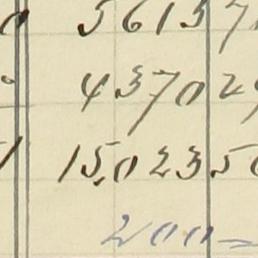 56137
437029
15,02350
200=